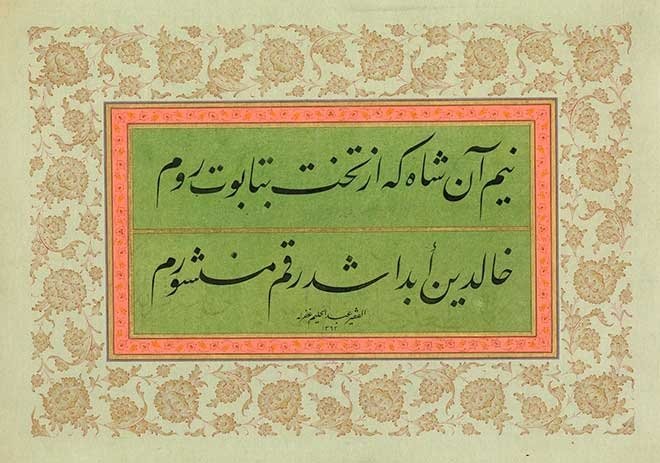 نیم آن شاه که از تخت بتابوت روم
خالدین أبدا شد رقم منشورم
الفقیر عبدالحلیم غفرله
١٣٦٢